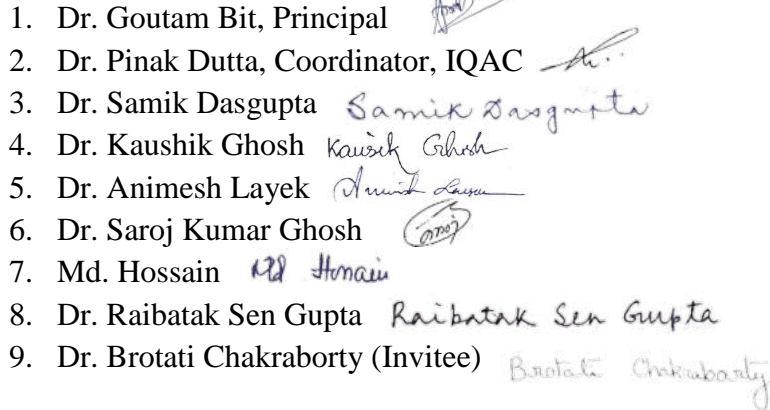 1. Dr. Goutam Bit, Principal
2. Dr. Pinak Dutta, Coordinator, IQAC
3. Dr. Samik Dasgupta Samik Dasgupta
4. Dr. Kaushik Ghosh Kausik Ghosh
5. Dr. Animesh Layek
6. Dr. Saroj Kumar Ghosh
7. Md. Hossain Md Hossain
8. Dr. Raibatak Sen Gupta Raibatak Sen Gupta
9. Dr. Brotati Chakraborty (Invitee) Brotati Chakrabarty